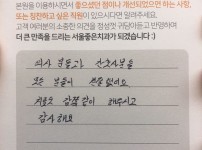 본원을 이용하시면서 좋으셨던 점이나 개선되었으면 하는 사항,
또는 칭찬하고 싶은 직원이 있으시다면 알려주세요.
고객 여러분의 소중한 의견을 정성껏 귀담아듣고 반영하여
더 큰 만족을 드리는 서울좋은치과가 되겠습니다 :)
의사 분들과 간호사분들
모든 분들이 친절 없어요
치료도 꼼꼼 같이 해주시고
감사해요